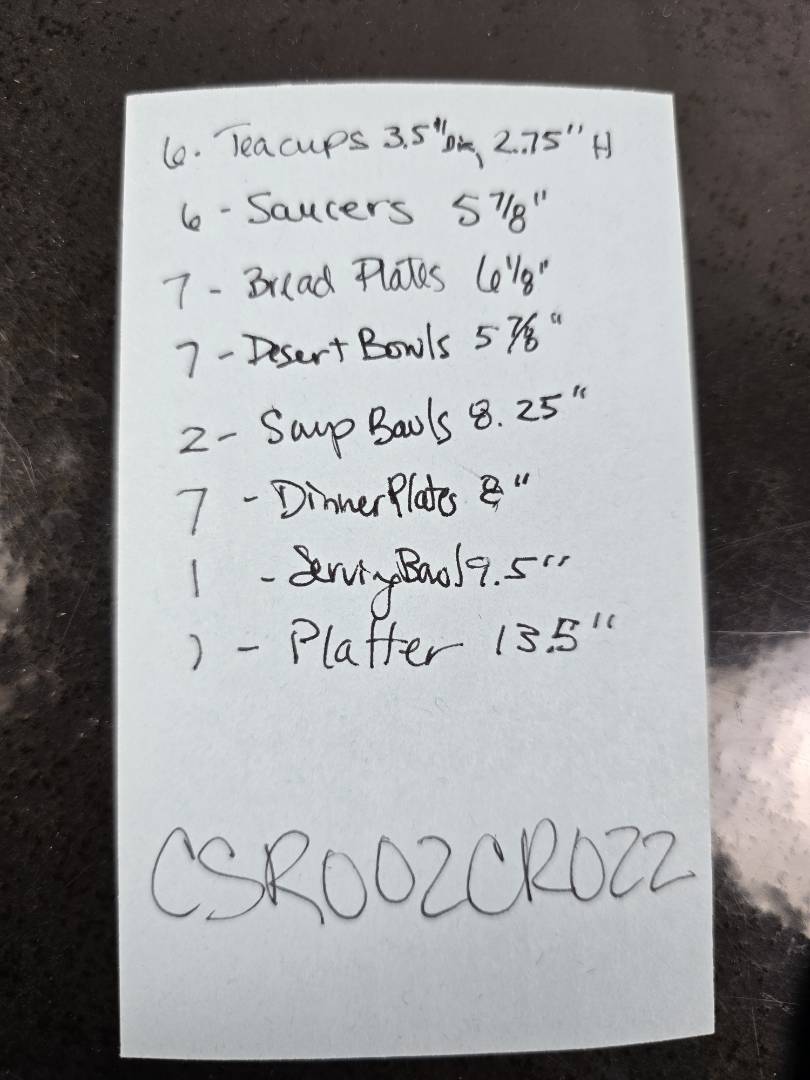 6. Teacups 3.5" Dia, 2.75" H
6 - Saucers 5 7/8"
7 - Bread Plates 6 1/8"
7 - Desert Bowls 5 7/8"
2 - Soup Bowls 8.25"
7 - Dinner Plates 8"
1 - Serving Bowl 9.5"
1 - Platter 13.5"
CSR002CR022